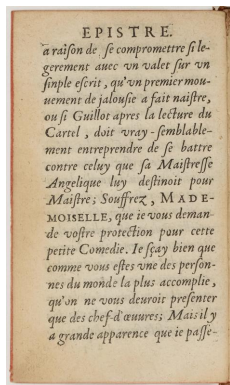 EPISTRE.
a raison de se compromettre si le-
gerement auec vn valet sur vn
sinple escrit, qu'vn premier mou-
uement de jalousie a fait naistre,
ou si Guillot apres la lecture du
Cartel, doit vray-semblable-
ment entreprendre de se battre
contre celuy que sa Maistresse
Angelique luy destinoit pour
Maistre; Souffrez, MADE-
MOISELLE, que ie vous deman-
de vostre protection pour cette
petite Comedie. Ie sçay bien que
comme vous estes vne des person-
nes du monde la plus accomplie,
qu'on ne vous deuroit presenter
que des chef-d'œuures; Mais il y
a grande apparence que ie passe-